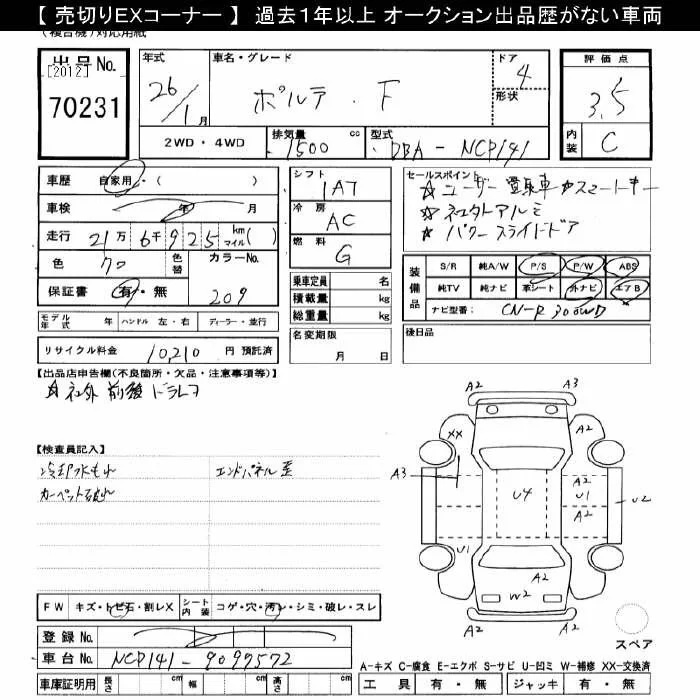 【 売切りEXコーナー 】 過去1年以上 オークション出品歴がない車両
(複合機)対応用紙
出品No.
[2012]
70231
年式
26/1月
車名・グレード
ポルテ . F
ドア
4
形状
評価点
3.5
内装
C
2WD・4WD
排気量
1500 cc
型式
DBA - NCP141
車歴 自家用・( )
車検 年 月
走行 21万6千925 km マイル( )
色 クロ
色替
カラーNo.
209
保証書 有・無
シフト
1A7
冷房
AC
燃料
G
セールスポイント
☆ユーザー買取車
☆社外アルミ
☆パワースライドドア
装備品
S/R 純A/W P/S P/W ABS
純TV 純ナビ 革シート 外ナビ エアB
ナビ型番: CN-R300WD
モデル年式 年 ハンドル 左・右 ディーラー・並行
リサイクル料金 10,210 円 預託済
乗車定員 名
積載量 kg
総重量 kg
名変期限
月 日
後日品
【出品店申告欄(不良箇所・欠品・注意事項等)】
☆社外 前後 ドラレコ
【検査員記入】
冷却水もれ エンドパネル歪
カーペット破れ
A2 A3
XX A2
A3 U4 A2
U1 U2
A2
U1 A2
A2
W2
スペア
FW キズ・トビ石・割レX シート内装 コゲ・穴・汚レ・シミ・破レ・スレ
登録No.
車台No. NCP141-9099572
車庫証明用 長さ cm 幅 cm 高さ cm
A-キズ C-腐食 E-エクボ S-サビ U-凹ミ W-補修 XX-交換済
工具 有・無 ジャッキ 有・無